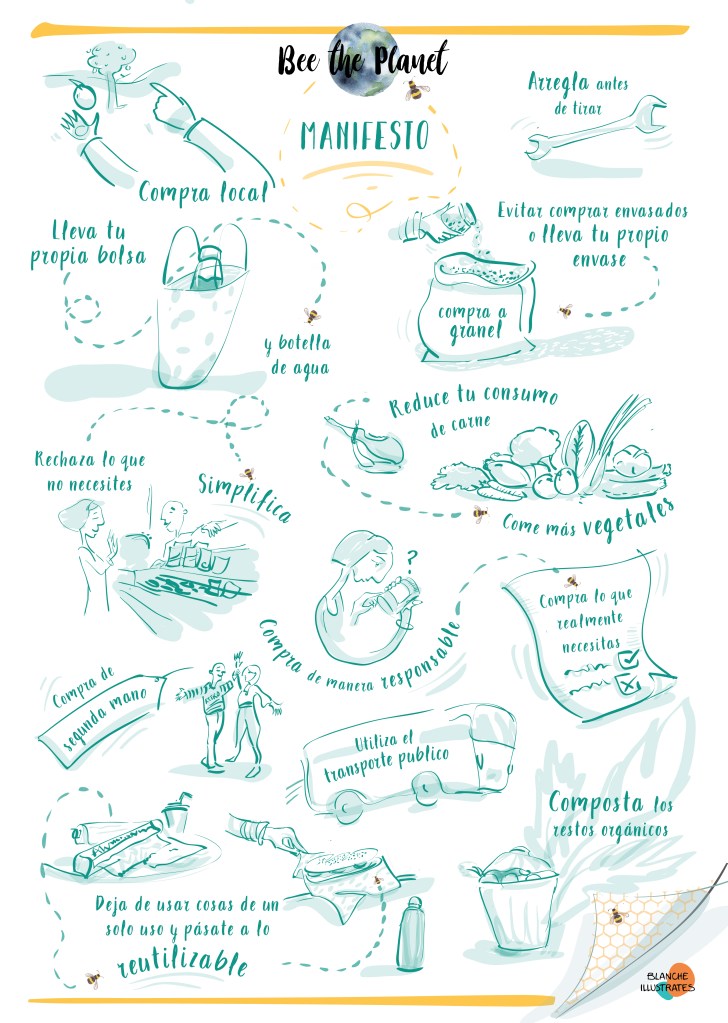 Bee the Planet
MANIFESTO
Compra local
Arregla antes
de tirar
Lleva tu
propia bolsa
y botella
de agua
Evitar comprar envasados
o lleva tu propio
envase
compra a
granel
Reduce tu consumo
de carne
Come más vegetales
Rechaza lo que
no necesites
Simplifica
?
Compra de manera responsable
Compra lo que
realmente
necesitas
Compra de
segunda mano
Utiliza el
transporte publico
Composta los
restos orgánicos
Aluminium
Deja de usar cosas de un
solo uso y pásate a lo
reutilizable
BLANCHE
ILLUSTRATES